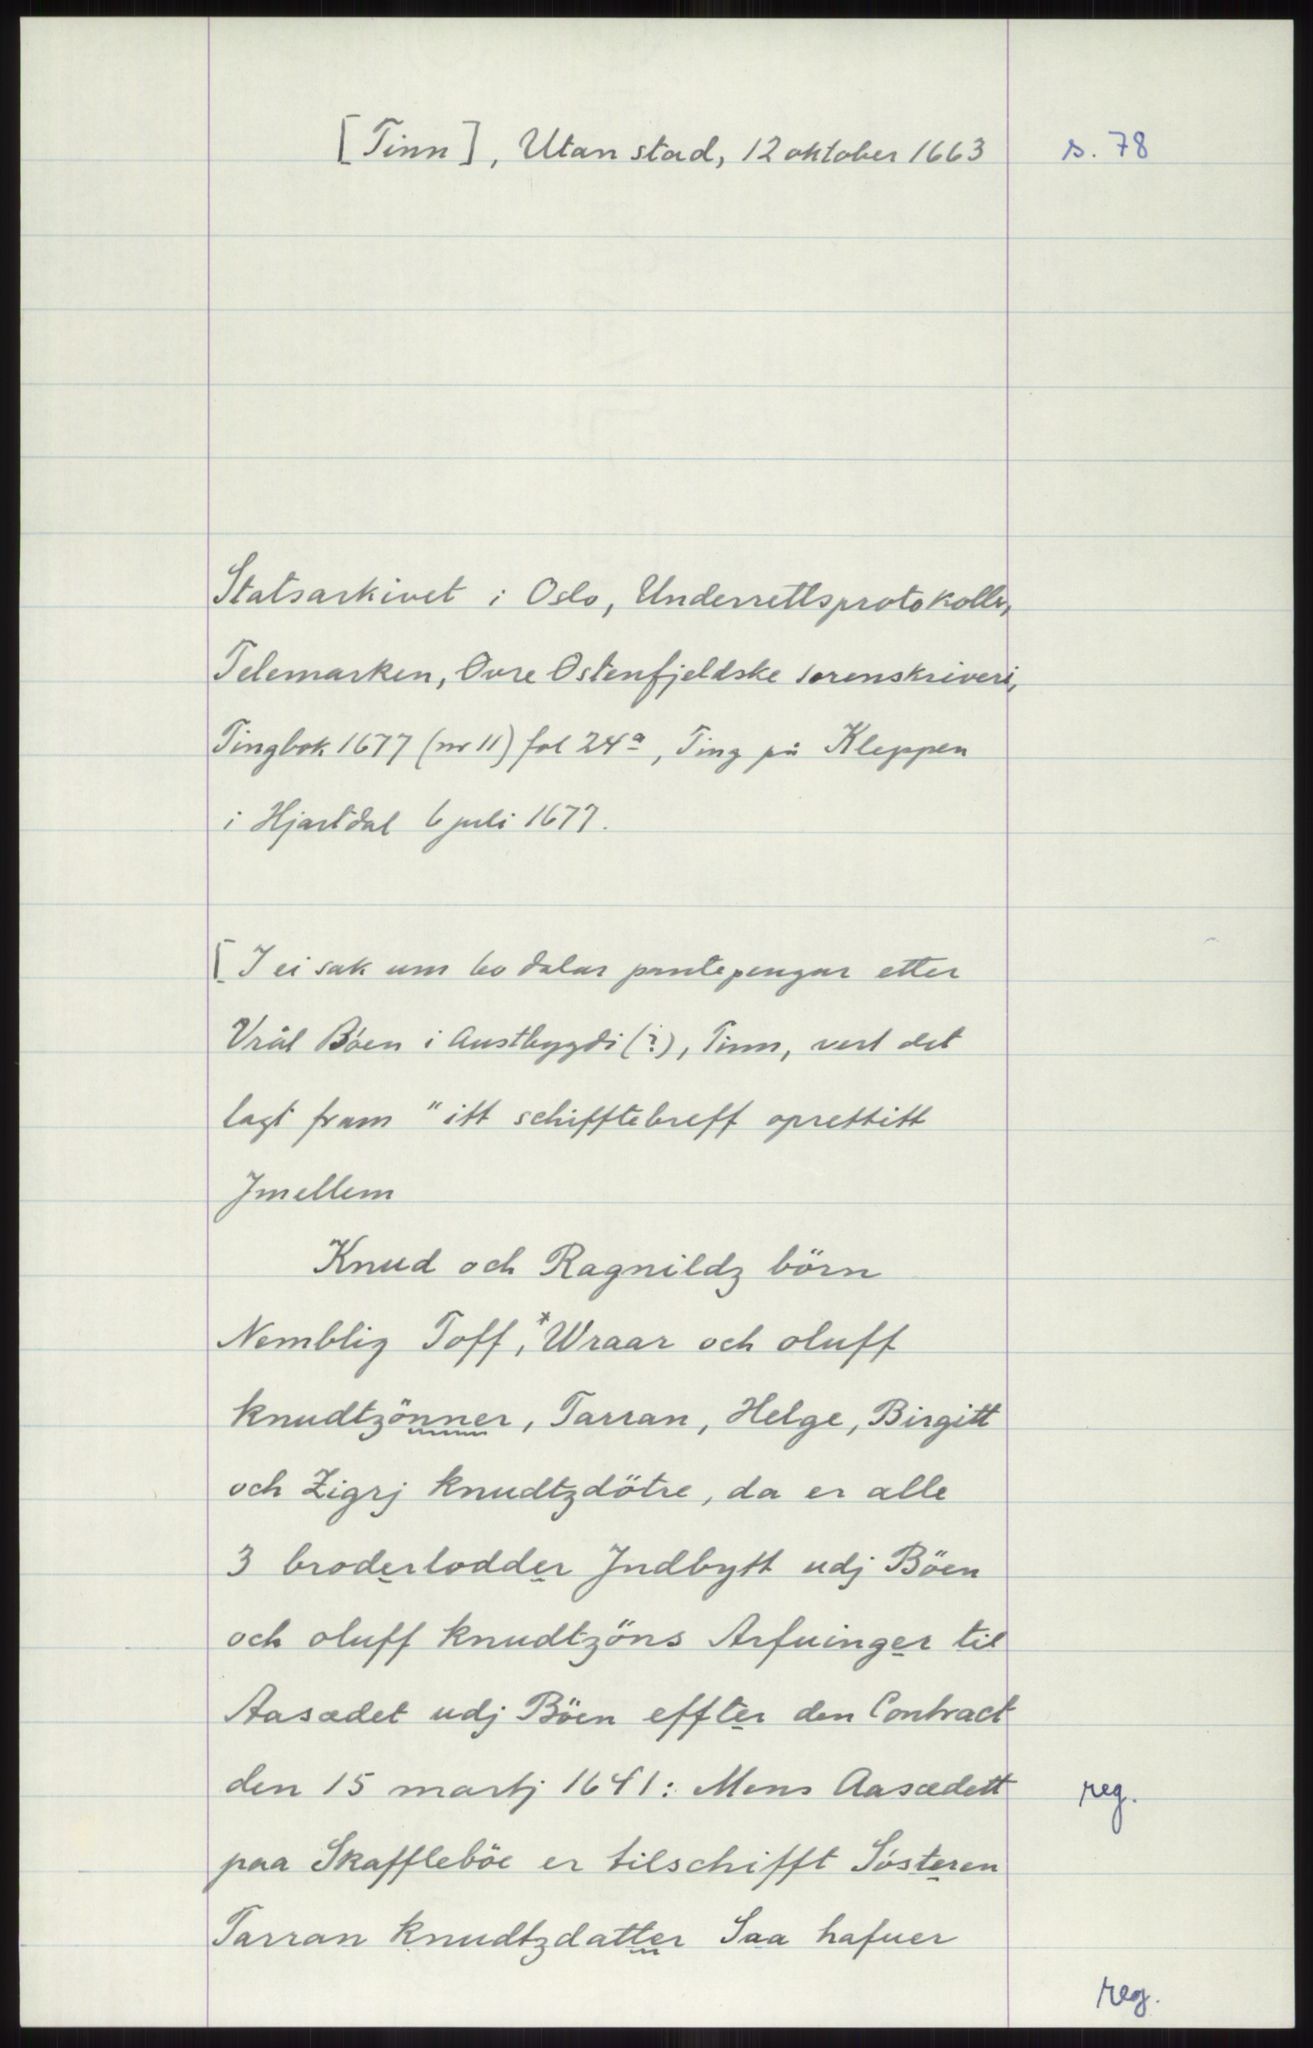 [Tinn], Utan stad, 12 oktober 1663 s. 78
Statsarkivet i Oslo, Underrettsprotokoller,
Telemarken, Øvre Østenfjeldske sorenskriveri,
Tingbok 1677 (nr 11) fol 24a, Ting på Kleppen
i Hjartdal 6 juli 1677.
[I ei sak um 60 dalar pantepengar etter
Vrål Böen i Austbygdi (?), Tinn, vert det
lagt fram "itt schifftebreff oprettitt
Jmellem
Knud och Ragnildz börn
Nemblig Toff, *Wraar och oluff
knudtzönner, Tarran, Helge, Birgitt
och Zigrj knudtzdötre, da er alle
3 broderlodder Jndbytt udj Böen
och oluff knudtzöns Arfuinger til
Aasædet udj Böen effter den Contract
den 15 martj 1641: Mens Aasædett reg.
paa Skaffleböe er tilschifft Sösteren
Tarran knudtzdatter Saa hafuer
reg.